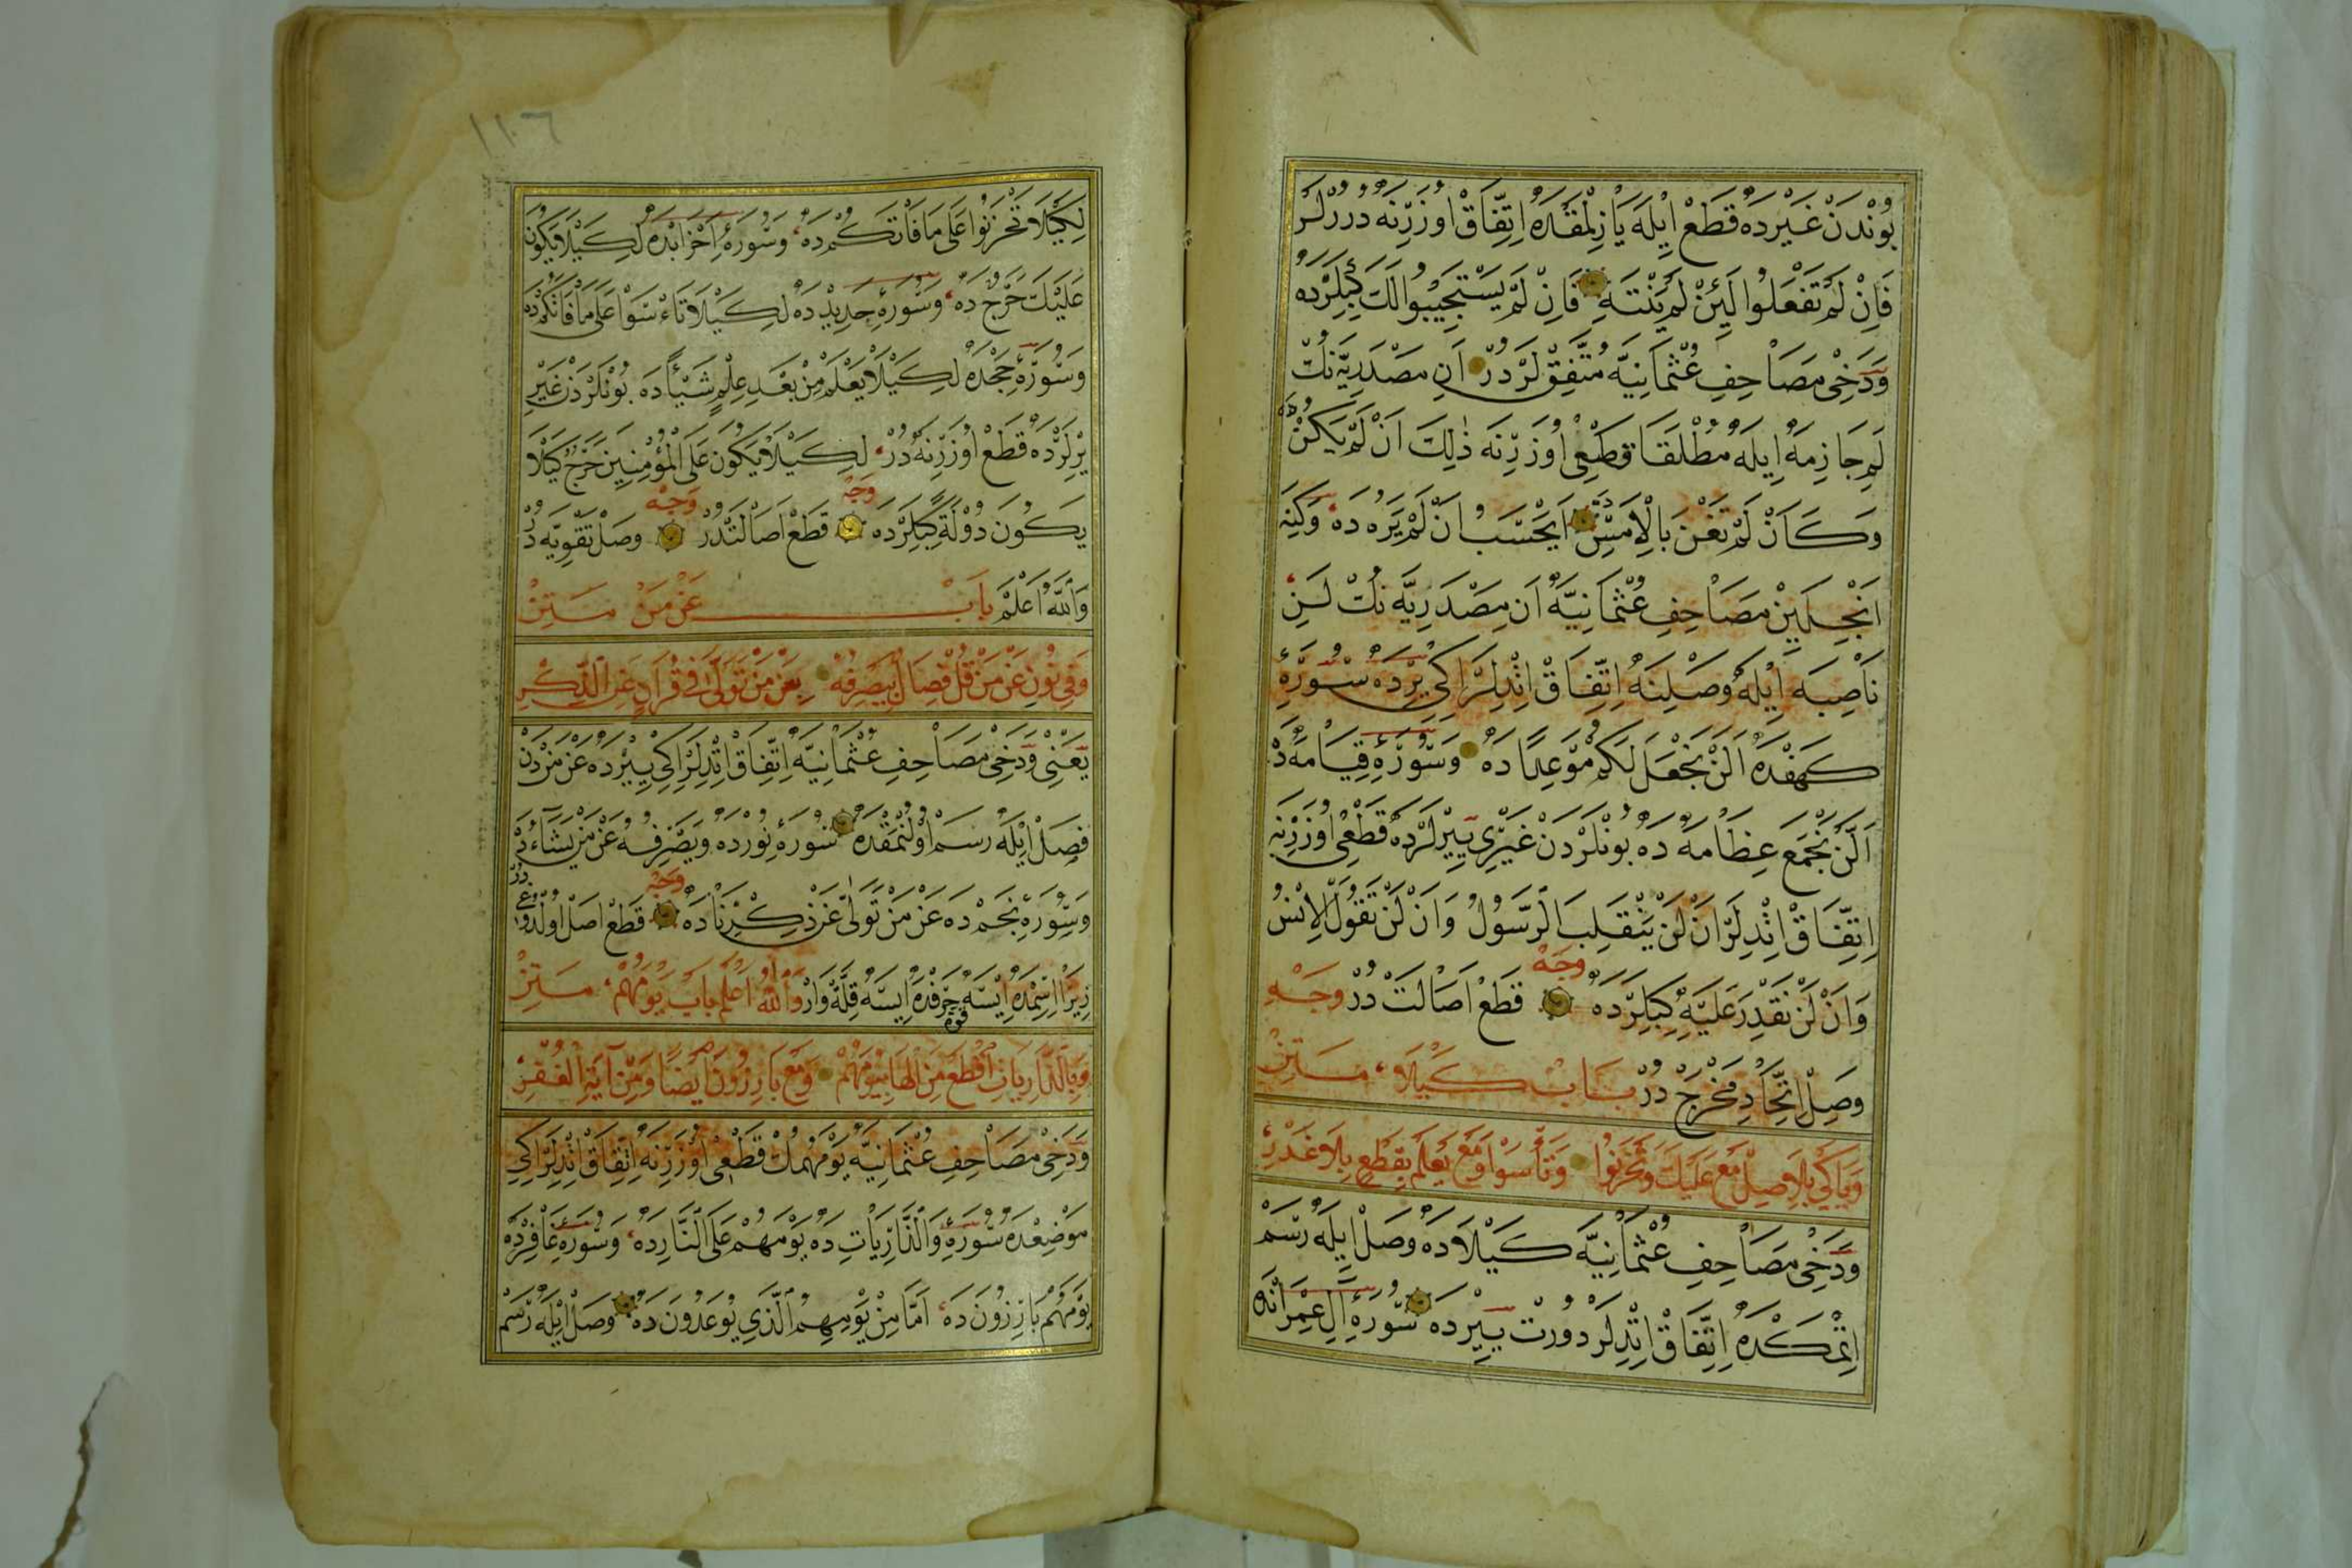 بُوندَنْ غَيْرِده قَطَعْ اِيلَه يَازِلْمَقدَه اِتِّفَاقْ اُوزَرِنَه دُرْلَرْ
فَاِنْ لَمْ تَفْعَلُوا لَئِنْ لَمْ يَنْتَهِ فَاِنْ لَمْ يَسْتَجِيبُوا لَكَ كِبِلَرْدَه
وَدَخِى مَصَاحِفِ عُثْمَانِيَّه مُتَّفِقْلَرْدُرْ اَنِ مَصْدَرِيَّه نُكْ
لَمِ جَازِمَه اِيلَه مُطْلَقَا قَطْعِى اُوزَرِنَه ذٰلِكَ اَنْ لَمْ يَكُنْ دَه
وَكَاَنْ لَمْ تَغْنَ بِالْاَمْسِ دَه اَيَحْسَبُ اَنْ لَمْ يَرَهُ دَه وَكِنَه
اَنْجِلَيِنْ مَصَاحِفِ عُثْمَانِيَّه اَنِ مَصْدَرِيَّه نُكْ لَنِ
نَاصِبَه اِيلَه وَصْلِنَه اِتِّفَاقْ اِتْدِلَرْ اِكِى يِرْدَه سُورَۀِ
كَهْفْدَه اَلَّنْ نَجْعَلَ لَكُمْ مَوْعِدًا دَه وَسُورَۀِ قِيَامَه دَ
اَلَّنْ نَجْمَعَ عِظَامَهُ دَه بُونْلَرْدَنْ غَيْرِى يِيرْلَرْدَه قَطْعِى اُوزَرِنَه
اِتِّفَاقْ اِتْدِلَرْ اَنْ لَنْ يَنْقَلِبَ الرَّسُولُ وَاَنْ لَنْ تَقُولَ الْاِنْسُ
وَاَنْ لَنْ نَقْدِرَ عَلَيْهِ كِبِلَرْدَه وَجْه قَطَعْ اَصَالَتْ دُرْ وَجْهِ
وَصِلْ اِتِّحَادِ مَخْرَجْ دُرْ بَابْ كَيْلَا مَتِنْ
وَبِاكَىْ بِلَا وَصِلْ مَعْ عَلَيْكَ وَتَحْزَنُوا وَتَأْسَوْا وَمَعْ يَعْلَمَ بِقَطْعٍ بِلَا غَدْرِ
وَدَخِى مَصَاحِفِ عُثْمَانِيَّه كَيْلَا دَه وَصَلْ اِيلَه رَسَمْ
اِتْمَكْدَه اِتِّفَاقْ اِتْدِلَرْ دُورْتْ يِيرْدَه سُورَۀِ اٰلِ عِمْرَانَه
لِكَيْلَا تَحْزَنُوا عَلَى مَا فَاتَكُمْ دَه وَسُورَۀِ اَحْزَابْدَه لِكَيْلَا يَكُونَ
عَلَيْكَ حَرَجٌ دَه وَسُورَۀِ حَدِيدْ دَه لِكَيْلَا تَأْسَوْا عَلَى مَا فَاتَكُمْ دَه
وَسُورَۀِ حَجْدَه لِكَيْلَا يَعْلَمَ مِنْ بَعْدِ عِلْمٍ شَيْئًا دَه بُونْلَرْدَنْ غَيْرِ
يِرْلَرْدَه قَطَعْ اُوزَرِنَه دُرْ لِكَيْلَا يَكُونَ عَلَى الْمُؤْمِنِينَ حَرَجٌ كَيْلَا
يَكُونَ دُولَةً كِبِلَرْدَه وَجْه قَطَعْ اَصَالَتْدُرْ وَجْه وَصَلْ تَقْوِيَه دُرْ
وَاللّٰهُ اَعْلَمْ بَابْ عَنْ مَنْ مَتِنْ
وَفِى نُونِ عَنْ مَنْ قُلْ فِصَالُ بِيَصْرِفُهُ بِعَنْ مَنْ تَوَلَّى فِى قُرْاٰنٍ عَنِ الذِّكْرِ
يَعْنِى وَدَخِى مَصَاحِفِ عُثْمَانِيَّه اِتِّفَاقْ اِتْدِلَرْ اِكِى يِيرْدَه عَنْ مَنْ دَنْ
فَصِلْ اِيلَه رَسَمْ اُولُنْمَقْدَه سُورَۀِ نُورْدَه وَيَصْرِفُهُ عَنْ مَنْ يَشَاءُ دَه
وَسُورَۀِ نَجِمْ دَه عَنْ مَنْ تَوَلَّى عَنْ ذِكْرِنَا دَه وَجْه قَطَعْ اَصِلْ اُولْدُوغِى دُرْ
زِيرَا اِسِمْدَه اِيسَه قُوَّه حَرْفْدَه اِيسَه قِلَّه وَارْ وَاللّٰهُ اَعْلَمْ بَابْ يَوْمَهُمْ مَتِنْ
وَبِالذَّارِيَاتِ اقْطَعْ مِنَ الْهَا بِيَوْمَهُمْ وَمَعْ بَارِزُونَ اَيْضًا
وَدَخِى مَصَاحِفِ عُثْمَانِيَّه يَوْمَهُمْ نُكْ قَطْعِى اُوزَرِنَه اِتِّفَاقْ اِتْدِلَرْ اِكِى
مَوْضِعْدَه سُورَۀِ وَالذَّارِيَاتِ دَه يَوْمَ هُمْ عَلَى النَّارِ دَه وَسُورَۀِ غَافِرْدَه
يَوْمَ هُمْ بَارِزُونَ دَه اَمَّا مِنْ يَوْمِهِمُ الَّذِى يُوعَدُونَ دَه وَصَلْ اِيلَه رَسَمْ